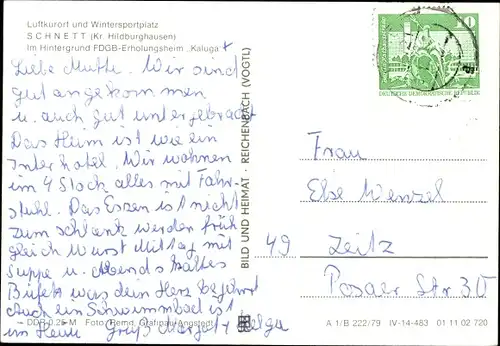 Luftkurort und Wintersportplatz
SCHNETT (Kr. Hildburghausen)
Im Hintergrund FDGB-Erholungsheim „Kaluga"
Liebe Mutti. Wir sind
gut angekommen
u. auch gut untergebracht
Das Heim ist wie ein
Interhotel. Wir wohnen
im 4 Stock alles mit Fahr-
stuhl. Das Essen ist nicht
zum schlank werden früh
gleich Wurst Mittag mit
Suppe u. Abends kaltes
Büfett was dein Herz begehrt
Auch ein Schwimmbad ist
im Heim Gruß Margot + Helga
DDR 0,25 M Foto: Bernd
BILD UND HEIMAT · REICHENBACH (VOGTL)
10
DEUTSCHE DEMOKRATISCHE REPUBLIK
Frau
Else Wenzel
49 Zeitz
Posaer Str 30
A 1/B 222/79 IV-14-483 01 11 02 720